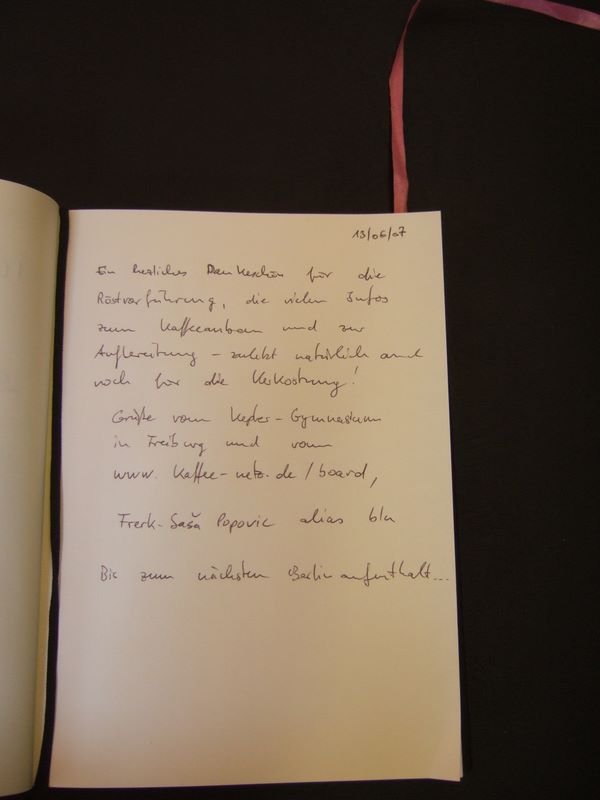 13/06/07
Ein herzliches Dankeschön für die
Röstvorführung, die vielen Infos
zum Kaffeeanbau und zur
Aufbereitung – zuletzt natürlich auch
noch für die Verkostung!
Grüße vom Kepler-Gymnasium
in Freiburg und vom
www.kaffee-netz.de/board,
Frerk-Saša Popovic alias blu
Bis zum nächsten Berlinaufenthalt...